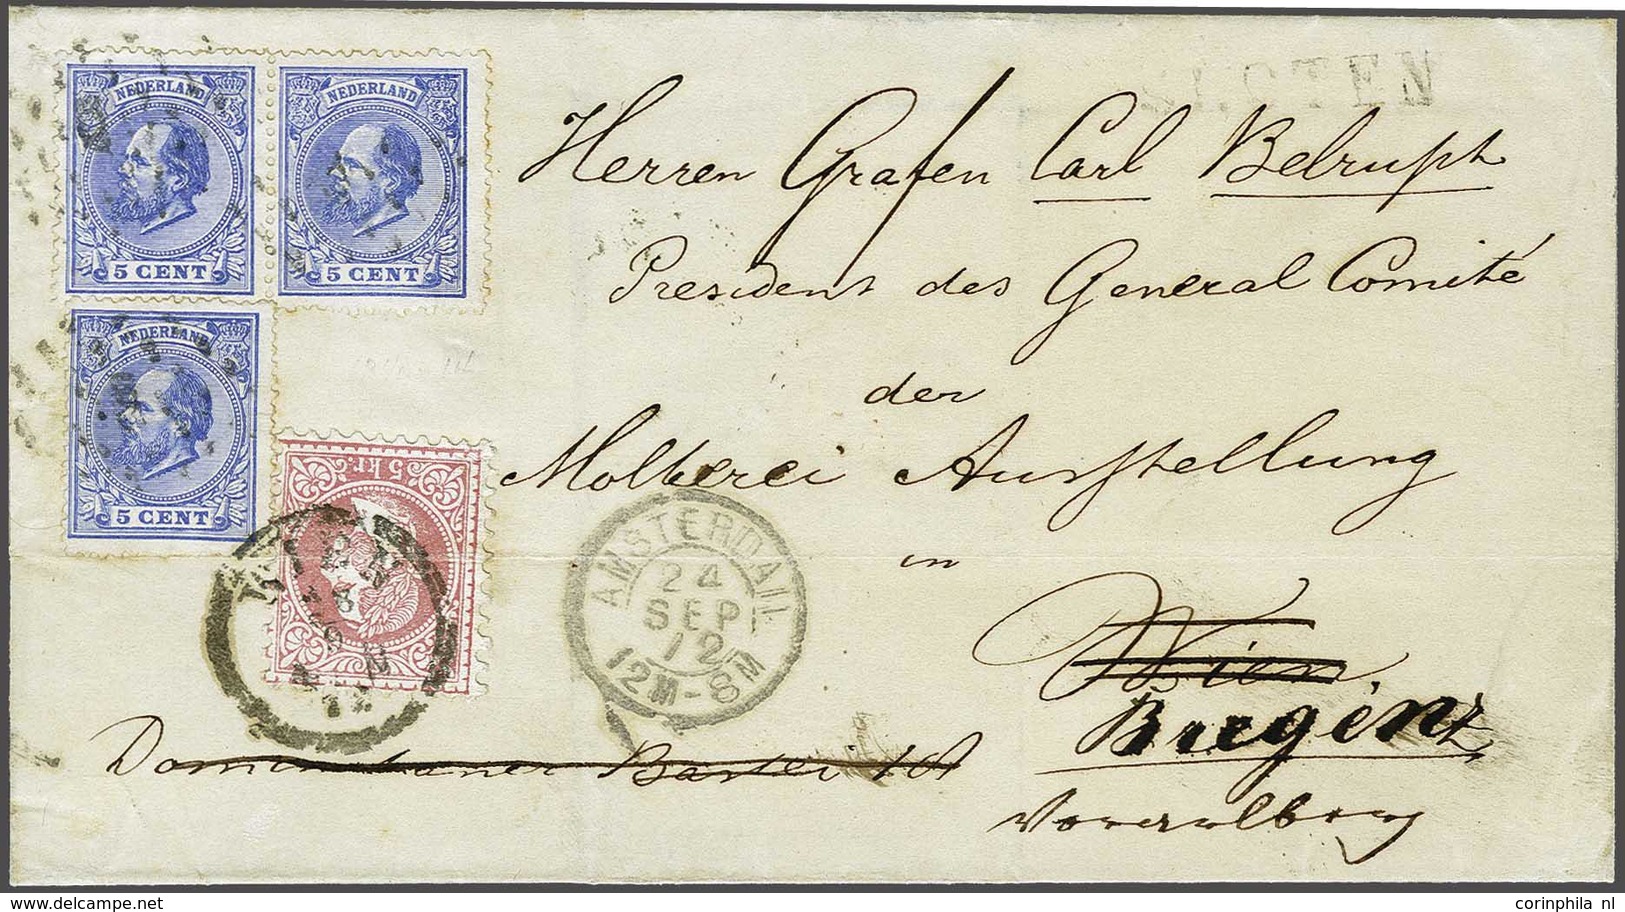 SLOTEN
NEDERLAND
5 CENT
NEDERLAND
5 CENT
NEDERLAND
5 CENT
5 kr.
Herren Grafen Carl Belrupt
President des General Comité
der
Molkerei Ausstellung
in
Wien
Bregenz
Vorarlberg
Dominikaner Bastei
AMSTERDAM
24
SEP
72
12M-8M
WIEN
corinphila nl